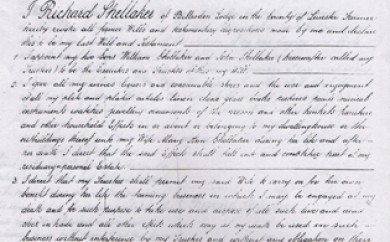 I Richard Shellaker of Billesdon Lodge in the County of Leicester Farmer
hereby revoke all former Wills and testamentary dispositions made by me and declare
this to be my last Will and Testament
1. I appoint my two Sons William Shellaker and John Shellaker (hereinafter called my
Trustees) to be the Executors and Trustees of this my Will.
2. I give all my wines liquors and consumable stores and the use and enjoyment
of all my plate and plated articles linen china glass books pictures prints musical
instruments watches jewellery ornaments of the person and other household furniture
and other Household Effects in or about or belonging to my dwellinghouse or the
outbuildings thereof unto my Wife Mary Ann Shellaker during her life and after
her death I direct that the said Effects shall fall into and constitute part of my
residuary personal Estate
3. I direct that my Trustees shall permit my said Wife to carry on for her own
benefit during her life the farming business in which I may be engaged at my
death and for such purpose to take use and dispose of all such live and
over in trade and all other effects which may at my death be used in such
business without interference by my Trustees and without any